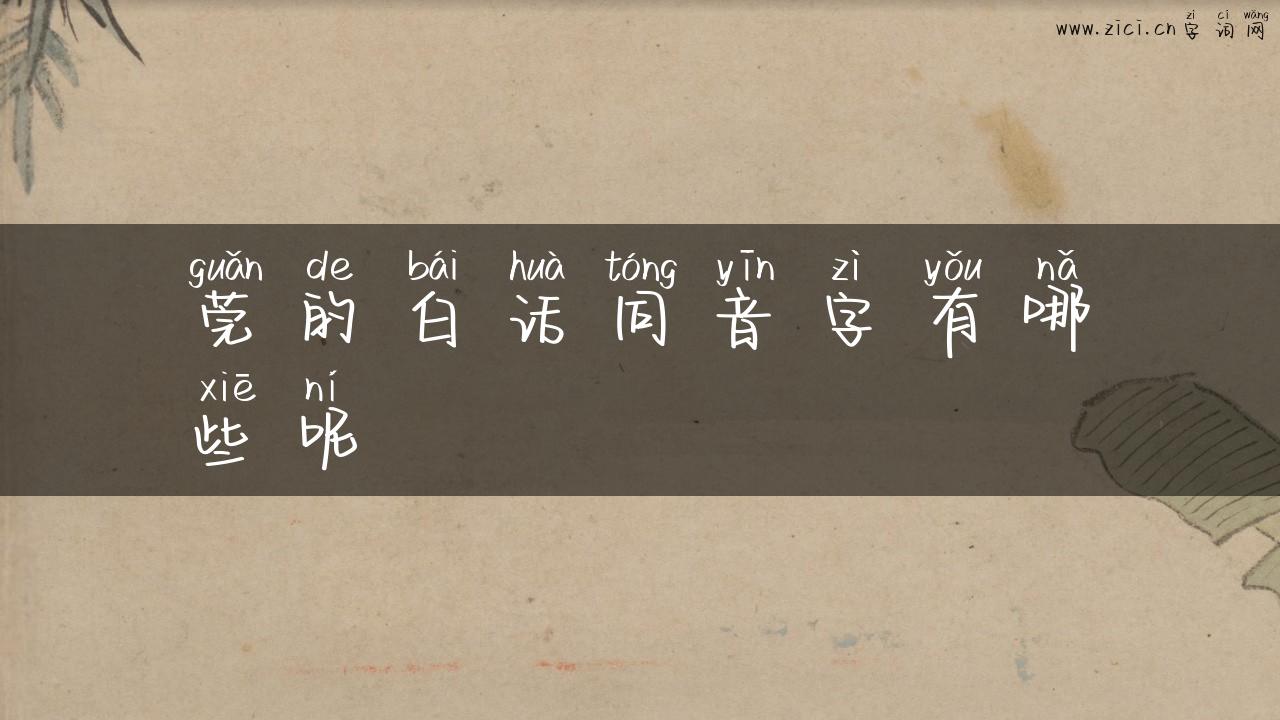 zì cí wǎng
www.zici.cn 字词网
guǎn de bái huà tóng yīn zì yǒu nǎ
莞的白话同音字有哪
xiē ní
些呢